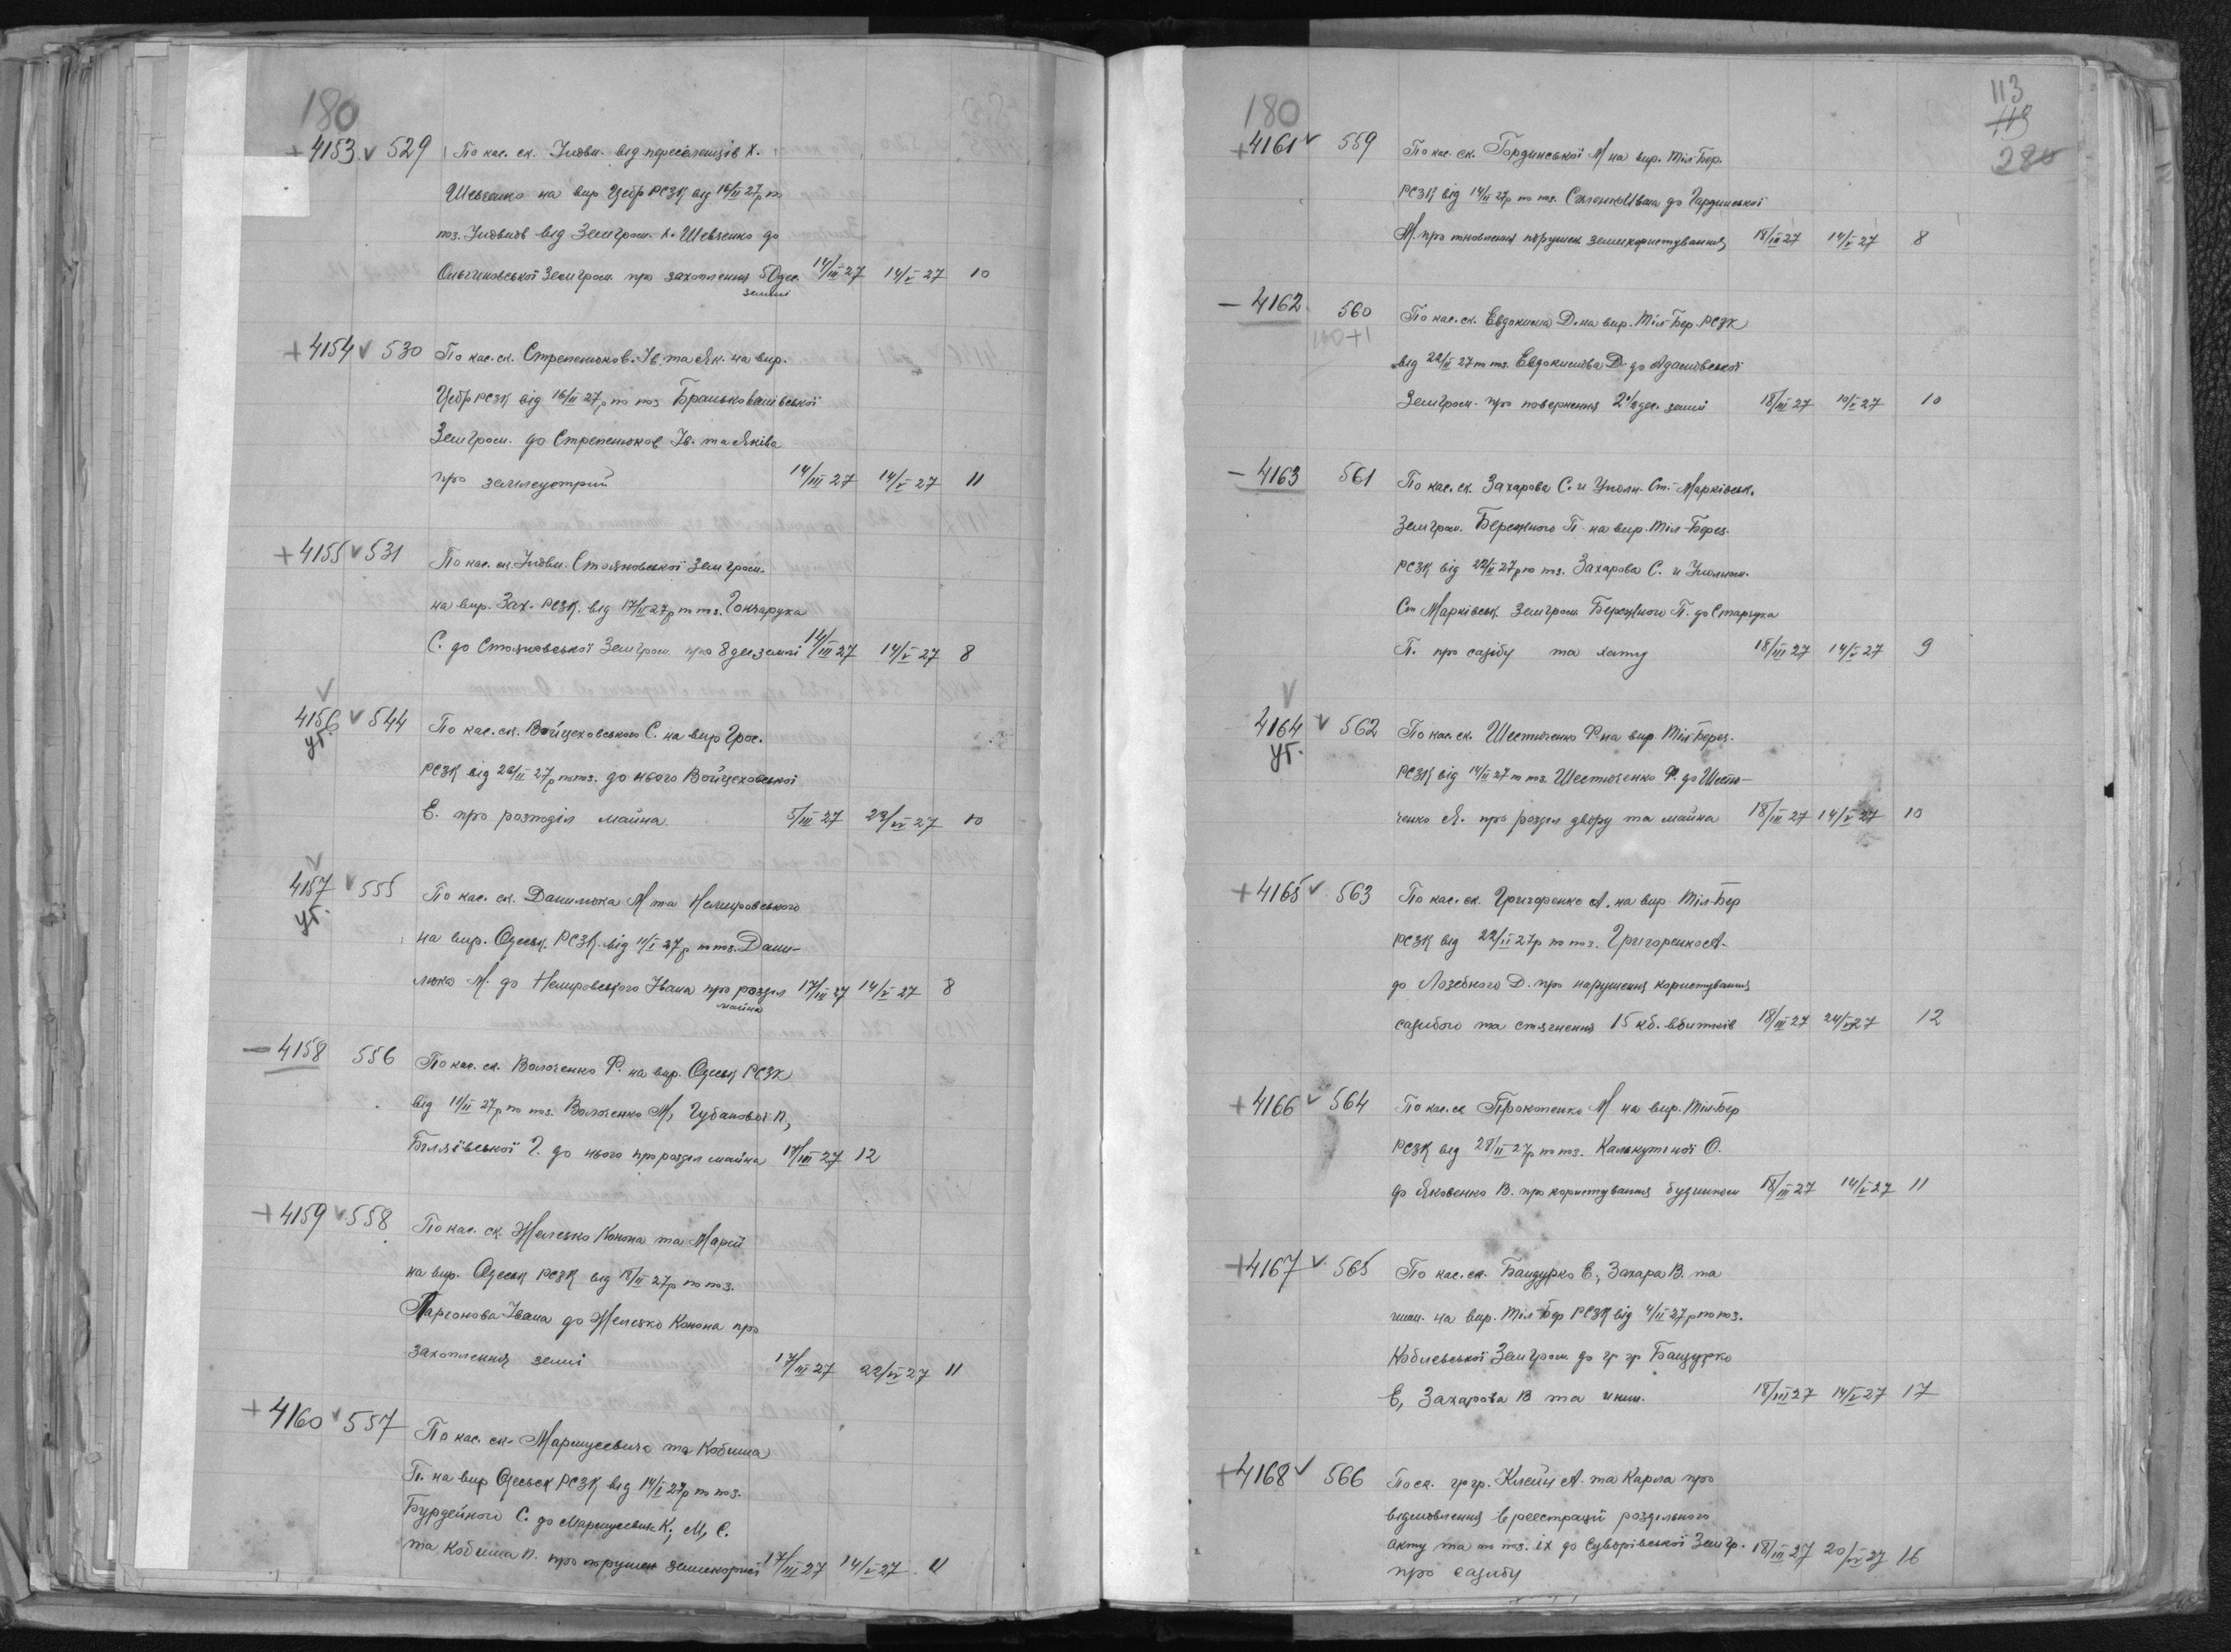 180
+ 4153 v 529 По кас. ск. Уповн. від переселенців х.
Шевченко на вир Цебр РСЗК від 16/II 27 р по
поз. Уповнов від Земгром. х. Шевченко до
Земгром. про захоплення 50 дес. 14/III 27 14/V 27 10
землі
+ 4154 v 530 По кас. ск. Стрепетюков. Ів. та Як. на вир.
Цебр РСЗК від 16/II 27 р по поз Браньковашівської
Земгром. до Стрепетюков Ів. та Яківа
про землеустрій 14/III 27 14/V 27 11
+ 4155 v 531 По кас. ск. Уповн. Стояновської Земгром.
на вир. Зах. РСЗК. від 17/II 27 р по поз. Гончарука
С. до Стояновської Земгром. про 8 дес землі 14/III 27 14/V 27 8
v
4156 v 544 По кас. ск. Войцеховського С. на вир Грос.
уг.
РСЗК від 26/II 27 р по поз. до нього Войцеховської
Е. про розподіл майна 5/III 27 22/VI 27 10
v
4157 v 555 По кас. ск. Данилюка М та Немировського
уг.
на вир. Одеськ. РСЗК. від 11/I 27 р по поз. Дани-
люка М. до Немировського Івана про розділ 17/III 27 14/V 27 8
майна
— 4158 556 По кас. ск. Волоченко Ф. на вир. Одеськ РСЗК
від 11/II 27 р по поз. Волоченко М, Губанової П,
Біляївської Г. до нього про розділ майна 17/III 27 12
+ 4159 v 558 По кас. ск. Желєзко Конона та Марії
на вир. Одеськ РСЗК від 18/II 27 р по поз.
Ларіонова Івана до Желєзко Конона про
захоплення землі 17/III 27 22/VI 27 11
+ 4160 v 557 По кас. ск. Марцусевича та Кобиша
П. на вир Одеськ РСЗК від 14/I 27 р по поз.
Бурдейного С. до Марцусевич К, М, С.
та Кобиша П. про порушен землекорист 17/III 27 14/V 27 11
180
113
113
280
+ 4161 v 559 По кас. ск. Гординської М на вир. Міл-Бер.
РСЗК від 14/II 27 р по поз. Івана до Гординської
М. про поновлення порушен землекористування 18/III 27 14/V 27 8
— 4162 560 По кас. ск. Евдокима Д. на вир. Міл-Бер. РСЗК
100+1
від 22/II 27 по поз. Евдокимова Д. до Адамівської
Земгром. про повернення 2 1/2 дес. землі 18/III 27 10/V 27 10
— 4163 561 По кас. ск. Захарова С. и Уполн. Ст.-Марківськ.
Земгром. Бережного П. на вир. Міл-Берез.
РСЗК від 22/II 27 р по поз. Захарова С. и Уполном.
Ст Марківськ. Земгром Бережного П. до Старчука
П. про садибу та хату 18/III 27 14/V 27 9
v
4164 v 562 По кас. ск. Шестюченко Ф. на вир. Міл-Берез.
уг.
РСЗК від 14/II 27 по поз. Шестюченко Ф. до Шестю-
ченко Я. про розділ двору та майна 18/III 27 14/V 27 10
+ 4165 v 563 По кас. ск. Григоренко А. на вир. Міл-Бер
РСЗК від 22/II 27 р по поз. Григоренко А.
до Лозебного Д. про нарушення користування
садибою та стягнення 15 кб. вбитків 18/III 27 24/VI 27 12
+ 4166 v 564 По кас. ск Прокопенко М на вир. Міл-Бер
РСЗК від 28/II 27 р по поз. Калькутіної О.
до Яковенко В. про користування будинком 18/III 27 14/V 27 11
+ 4167 v 565 По кас. ск. Бандурко Е., Захара В. та
инш. на вир. Міл-Бер РСЗК від 4/II 27 р по поз.
Коблевської Земгром. до гр гр Бандурко
Е, Захарова В та инш. 18/III 27 14/V 27 17
+ 4168 v 566 По ск. гр гр. Клейн А. та Карла про
відмовлення в реєстрації роздільного
акту та по поз. іх до СуворівськоїЗемгр. 18/III 27 20/VI 27 16
про садибу